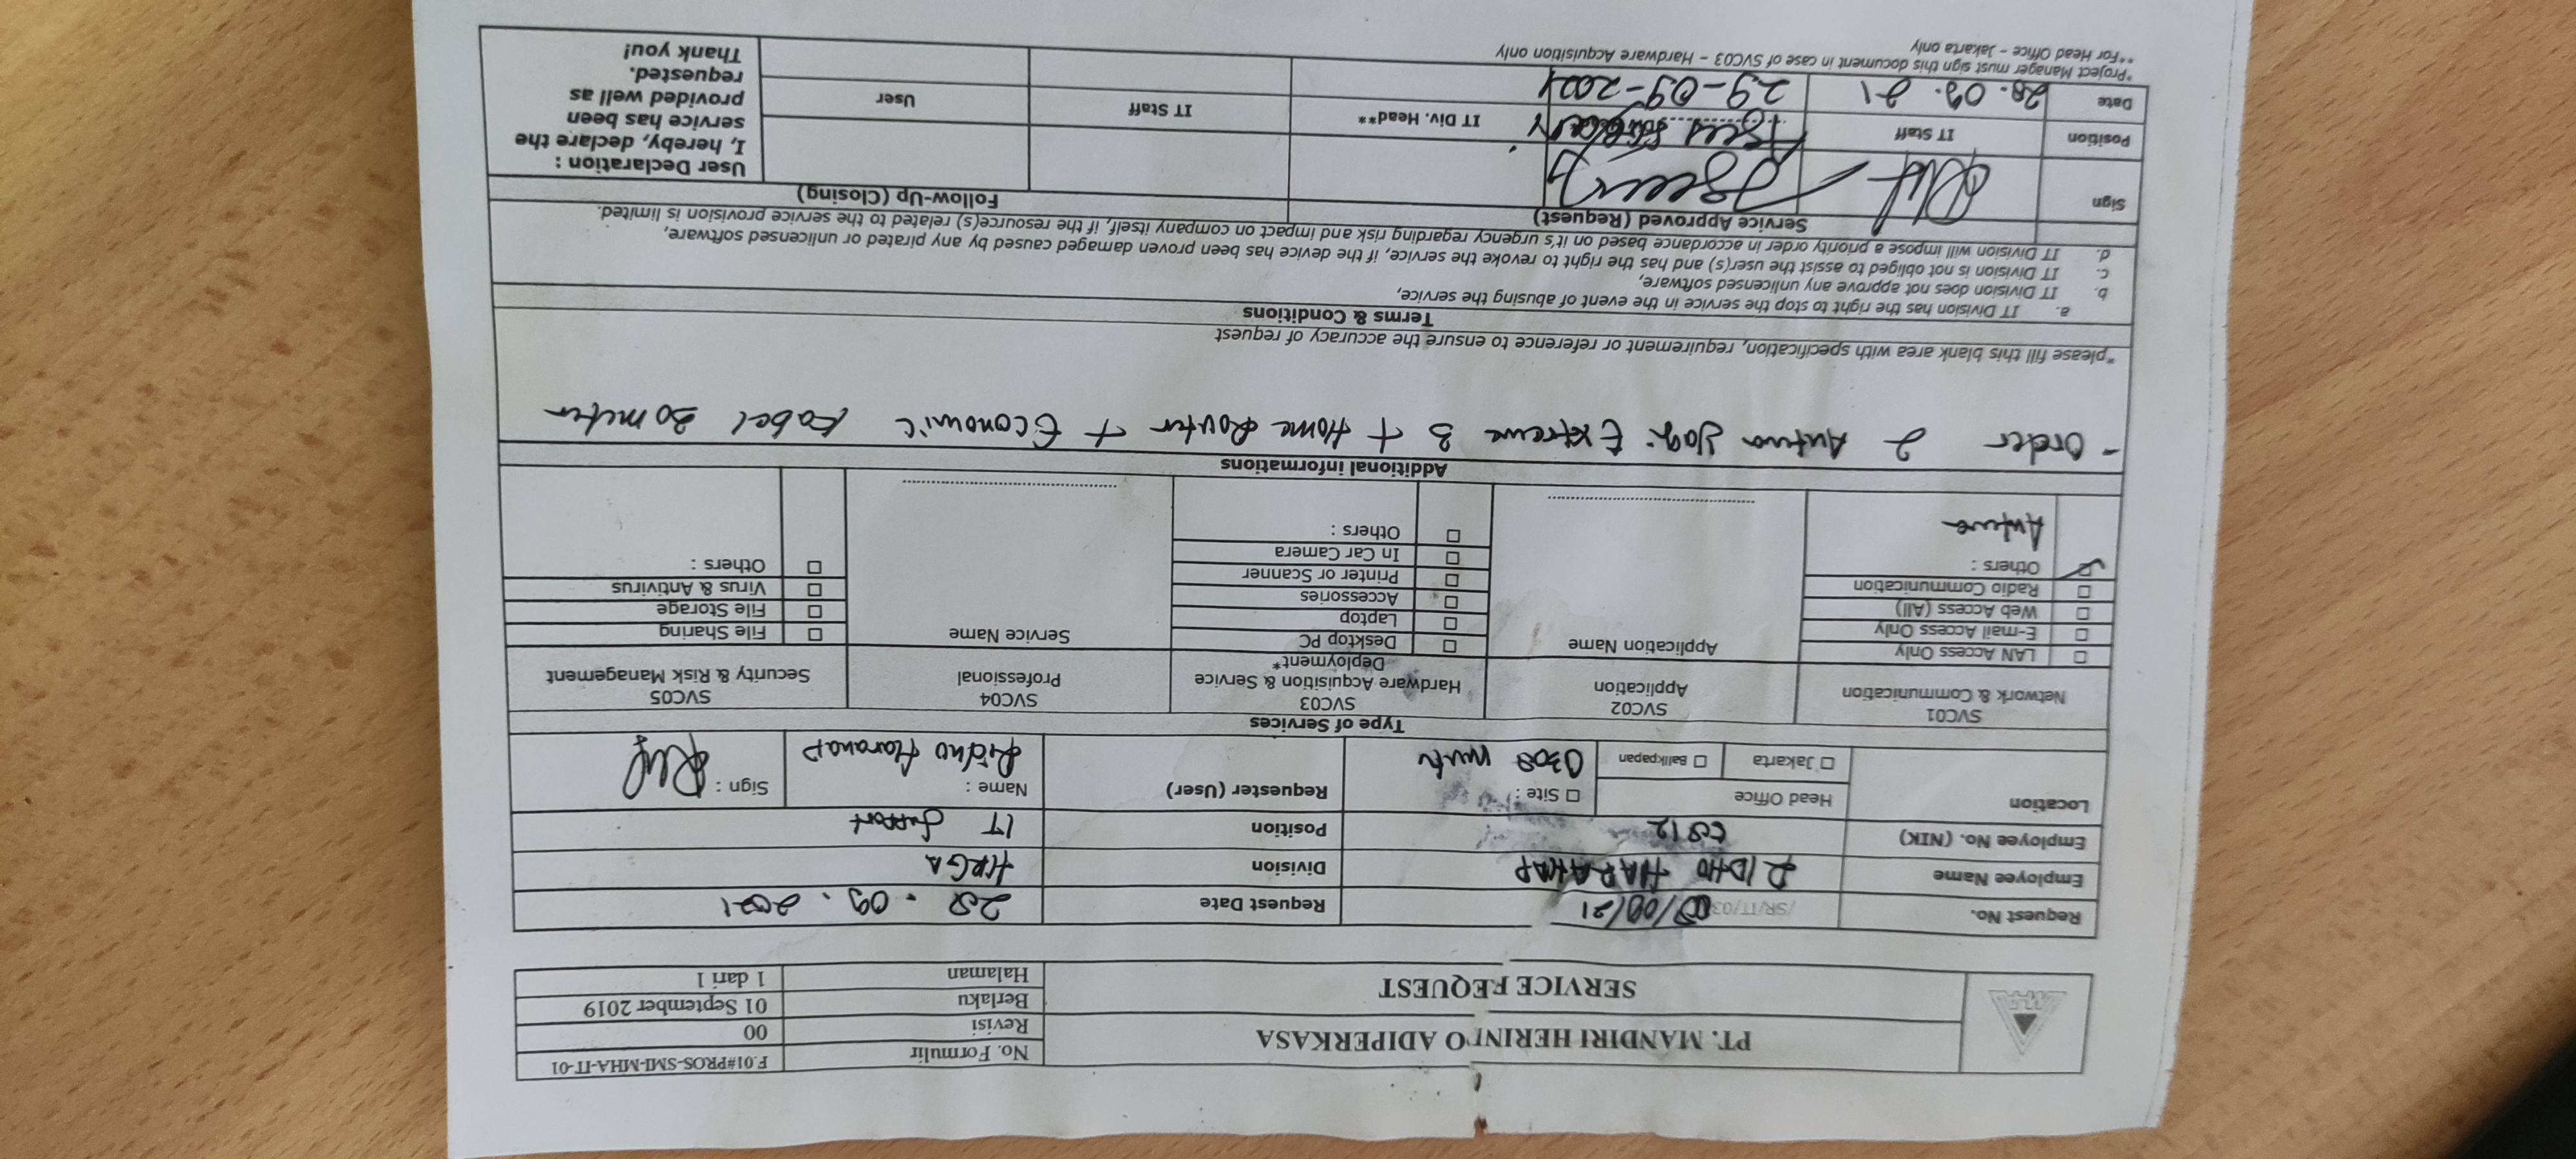 MHA
PT. MANDIRI HERINDO ADIPERKASA
SERVICE REQUEST
No. Formulir F.01#PROS-SMI-MHA-IT-01
Revisi 00
Berlaku 01 September 2019
Halaman 1 dari 1
Request No. /SR/IT/03 /09/21 Request Date 28. 09. 2021
Employee Name RIDHO HARAHAP Division HRGA
Employee No. (NIK) Position IT Support
Location Head Office ☐ Site : Requester (User) Name : Sign :
☐ Jakarta ☐ Balikpapan 0308 Ridho Harahap
Type of Services
SVC01 SVC02 SVC03 SVC04 SVC05
Network & Communication Application Hardware Acquisition & Service Deployment* Professional Security & Risk Management
☐ LAN Access Only Application Name ☐ Desktop PC Service Name ☐ File Sharing
☐ E-mail Access Only ☐ Laptop ☐ File Storage
☐ Web Access (All) ☐ Accessories ☐ Virus & Antivirus
☐ Radio Communication ☐ Printer or Scanner ☐ Others :
☑ Others : ☐ In Car Camera
Antena ☐ Others :
Additional Informations
- Order 2 Antena Yagi Extreme 3 + Home Router + Economic Kabel 20 meter
*please fill this blank area with specification, requirement or reference to ensure the accuracy of request
Terms & Conditions
a. IT Division has the right to stop the service in the event of abusing the service,
b. IT Division does not approve any unlicensed software,
c. IT Division is not obliged to assist the user(s) and has the right to revoke the service, if the device has been proven damaged caused by any pirated or unlicensed software,
d. IT Division will impose a priority order in accordance based on it's urgency regarding risk and impact on company itself, if the resource(s) related to the service provision is limited.
Service Approved (Request) Follow-Up (Closing)
Sign
Position IT Staff IT Div. Head** IT Staff User
Date 28. 09. 21 29-09-2021
User Declaration :
I, hereby, declare the
service has been
provided well as
requested.
Thank you!
*Project Manager must sign this document in case of SVC03 – Hardware Acquisition only
**For Head Office – Jakarta only